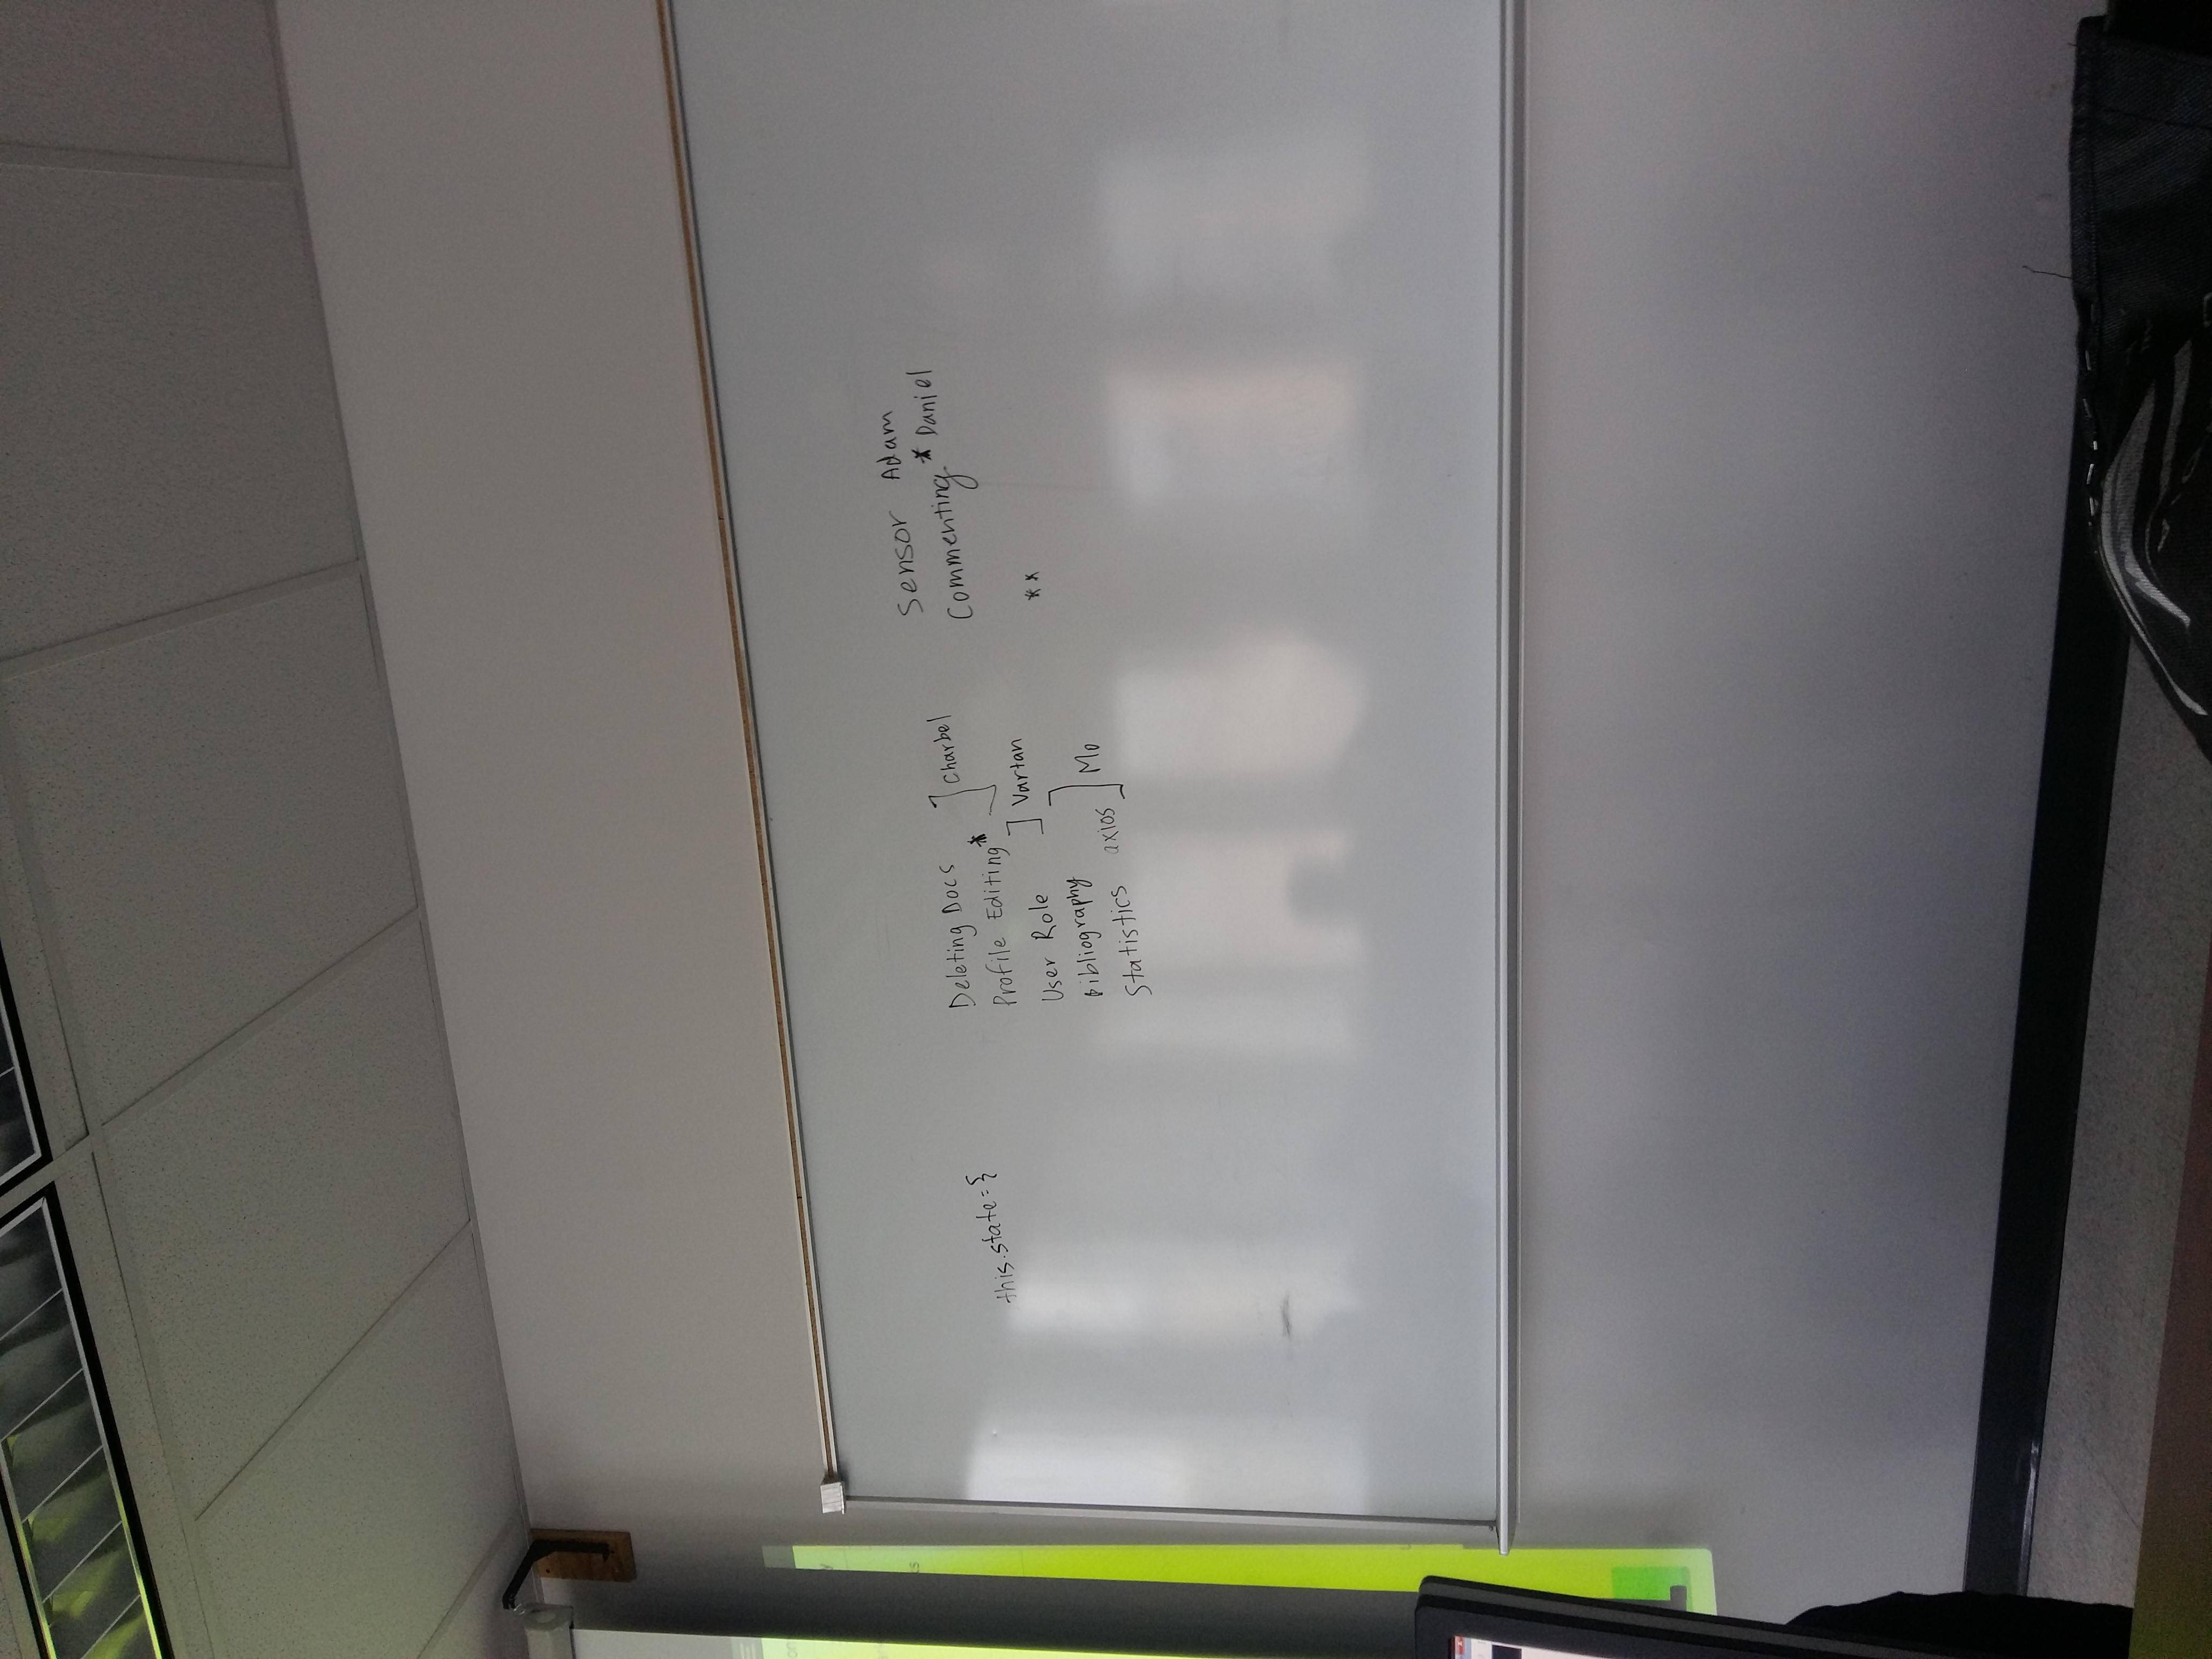 this.state={
Deleting Docs
Profile Editing*
Charbel
User Role
Vartan
Bibliography
Statistics axios
Mo
Sensor Adam
Commenting* Daniel
**